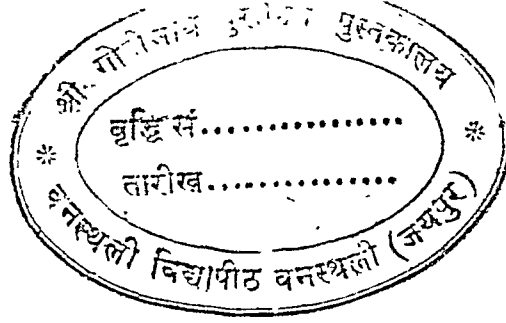 श्री गोपीनाथ पुस्तकालय
वृद्धि सं.................
तारीख.................
* वनस्थली विद्यापीठ वनस्थली (जयपुर) *